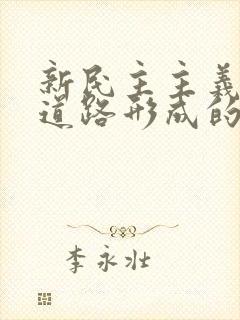 新民主主義
道路形成的
李永壮